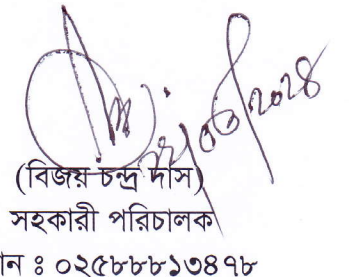 ২২/০৫/২০২৪
(বিজয় চন্দ্র দাস)
সহকারী পরিচালক
ান ঃ ০২৫৮৮৮১৩৪৭৮